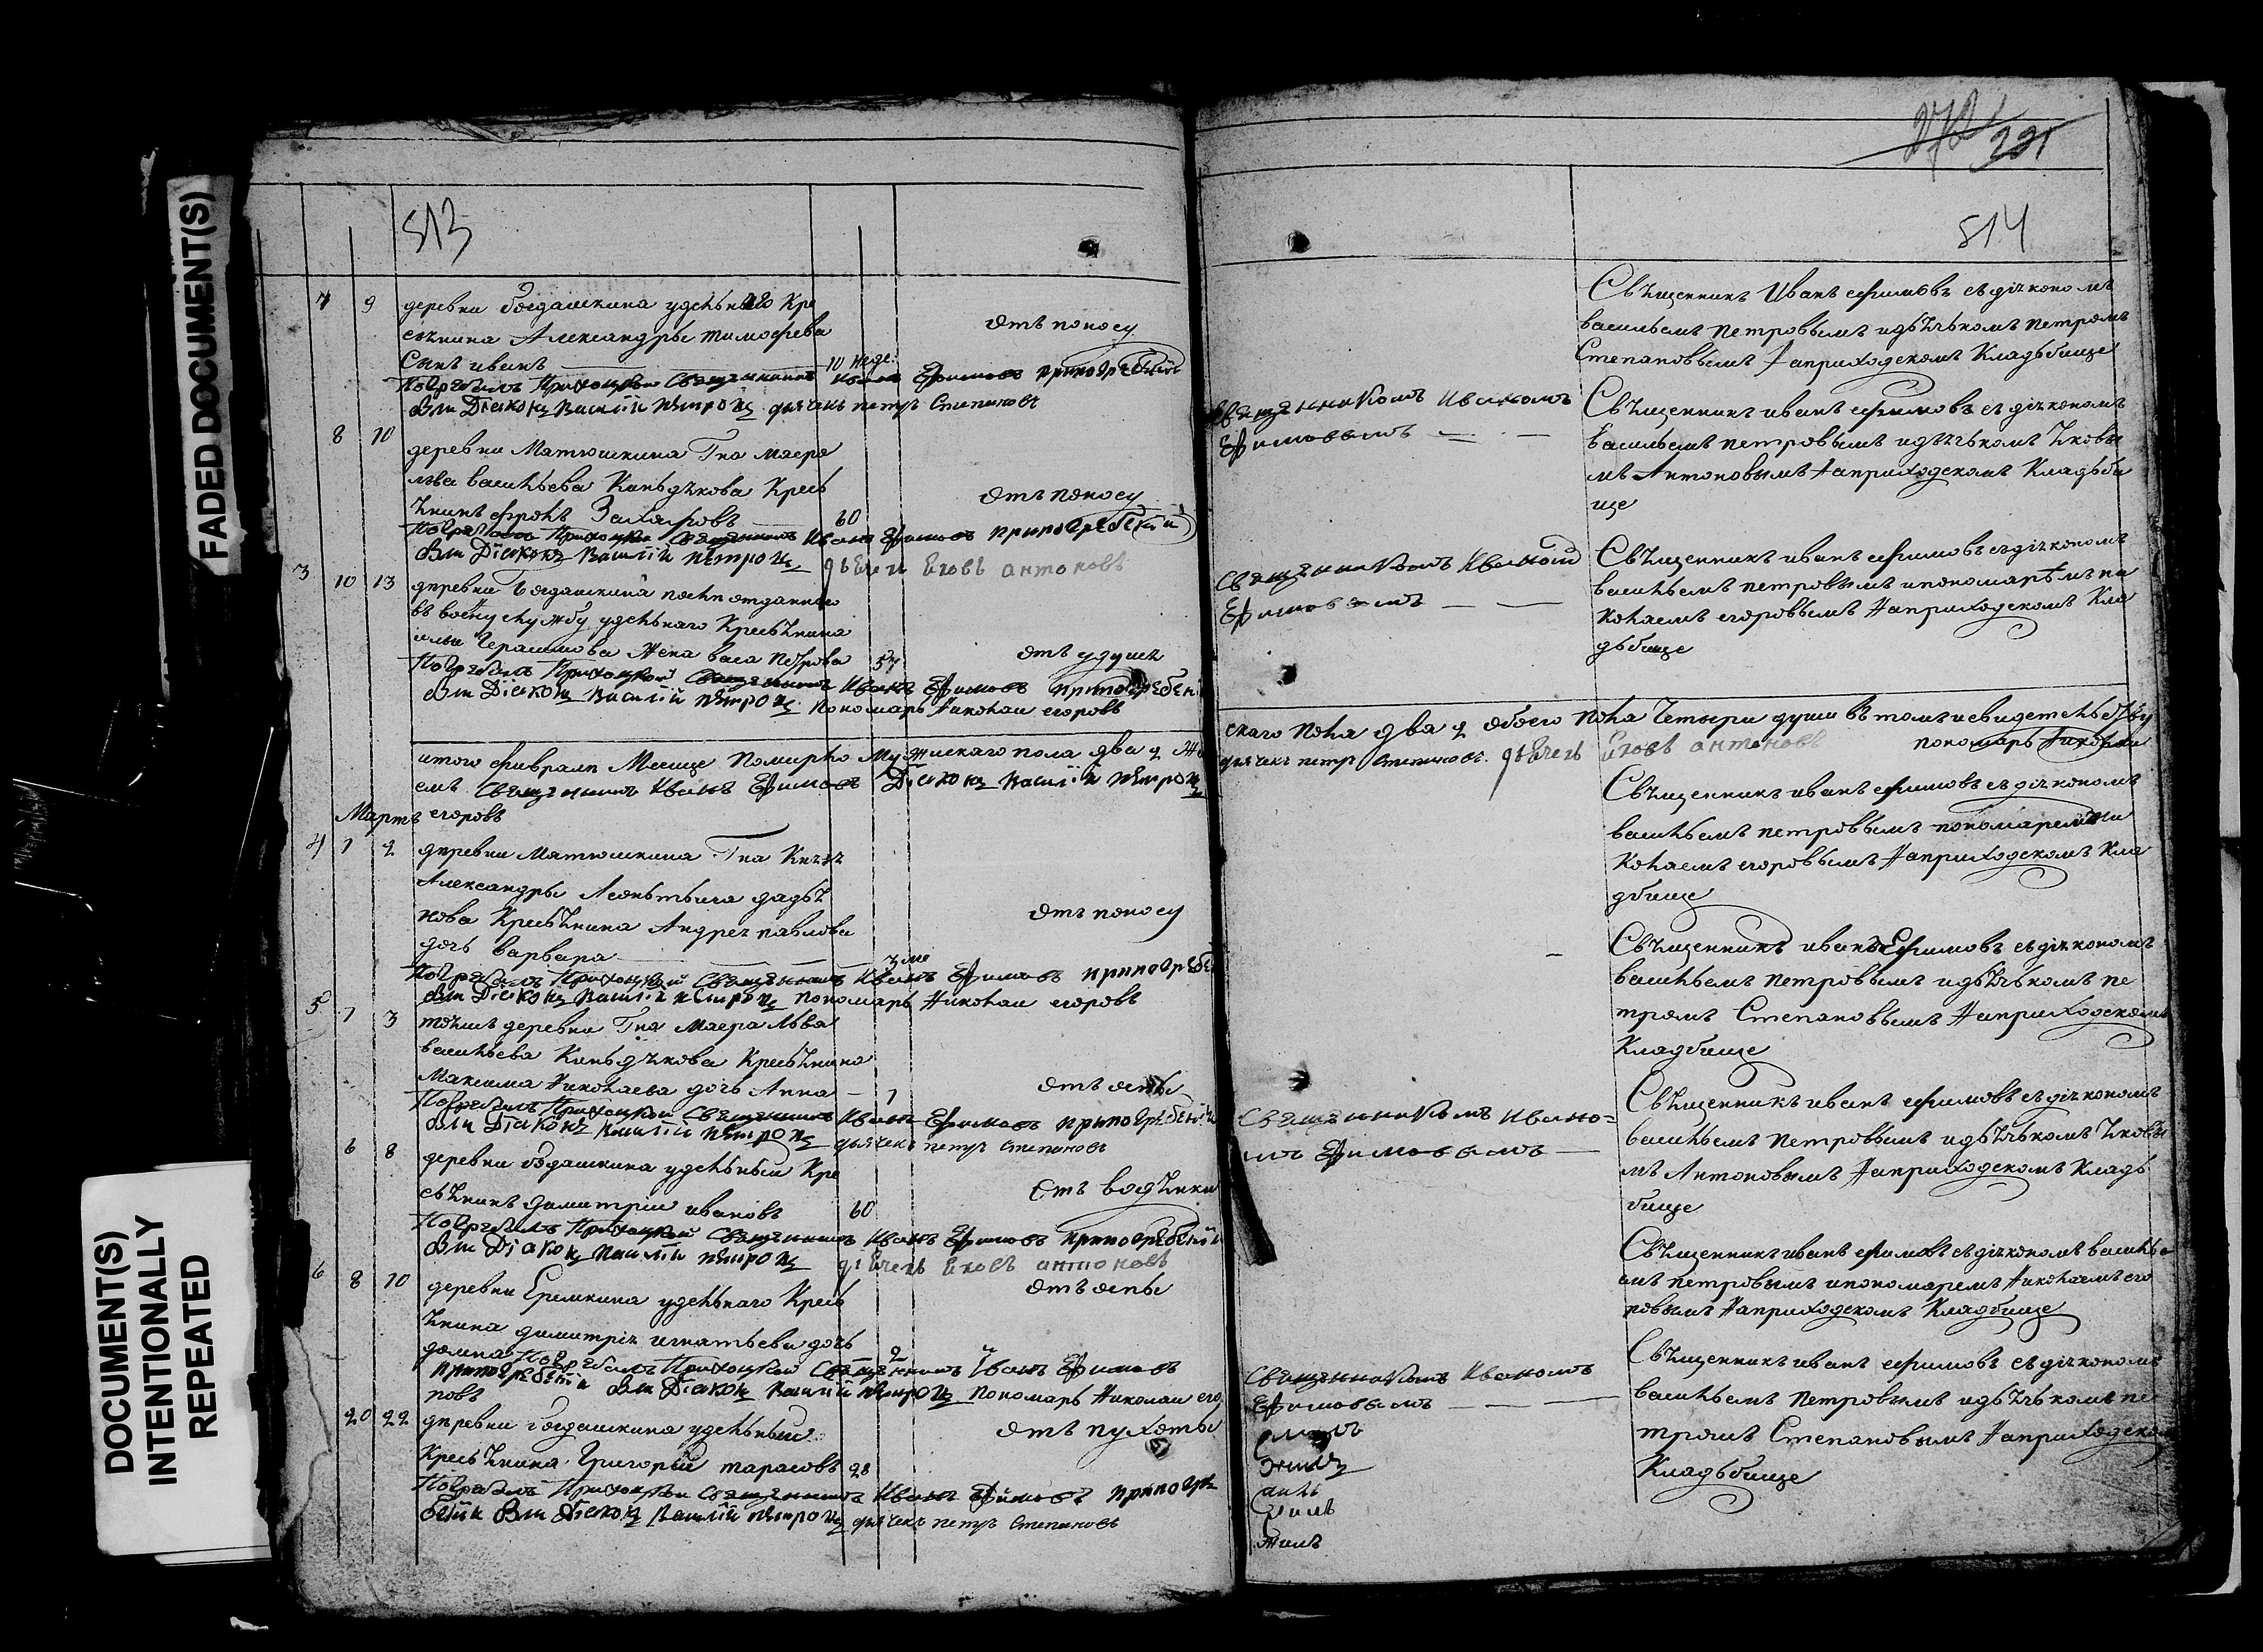 FADED DOCUMENT(S)
DOCUMENT(S)
INTENTIONALLY
REPEATED
513
7 9 деревни богдашкина удельнаго Кре
стьянина Александры тимофеева
Сынъ иванъ 10 неде: отъ поносу
Погребалъ Приходской Священникъ Иванъ Ефимовъ при погребенiи
были Дiаконъ Василiй Петровъ дьячекъ петръ Степановъ
8 10
деревни Матюшкина Гна маера
льва васильева Киньдякова Кресь
янинъ фролъ Захаровъ 60 отъ поносу
Погребалъ Приходской Священникъ Иванъ Ефимовъ при погребенiи
были Дiаконъ Василiй Петровъ дьячекъ Яковъ антоновъ
3 10 13 деревни Богдашкина отданнаго
въ воену службу удельнаго Кресьянина
Герасимова Жена васа Петрова 57 отъ удушья
Погребалъ Приходской Священникъ Иванъ Ефимовъ при погребенi
были Дiаконъ Василiй Петровъ Пономарь Николаи егоровъ
итого февраля Месяце Померло Мужескаго пола два Же
емъ Священникъ Иванъ Ефимовъ Дiаконъ Василiй Петровъ
Мартъ егоровъ
4 1 2 деревни Матюшкина Гна Князя
Александры Леоньтьича дадья
нова Кресьянина Андрея павлова
дочь варвара отъ поносу
Погребалъ Приходской Священникъ Иванъ Ефимовъ при погребе
были Дiаконъ Василiй Петровъ пономарь Николаи егоровъ
5 1 3 тояже деревни Гна Маера Льва
васильева Киньдякова Кресьянина
Максима Николаева дочь Анна 1 отъ оспы
Погребалъ Приходской Священникъ Иванъ Ефимовъ при погребенi
были Дiаконъ Василiй Петровъ дьячекъ петръ Степановъ
6 8 деревни богдашкина удельныи Кре
сьянинъ димитрiи ивановъ 60 отъ водянки
Погребалъ Приходской Священникъ Иванъ Ефимовъ при погребенiи
были Дiаконъ Василiй Петровъ дьячекъ Яковъ антоновъ
6 8 10 деревни Еремкина удельнаго Кресь отъ оспы
янина димитрiя игнатьева дочь
домна 2 Погребалъ Приходской Священникъ Иванъ Ефимовъ
при погребенiи были Дiаконъ Василiй Петровъ пономарь Николаи его
ровъ
20 22 деревни богдашкина удельныи отъ
Кресьянина Григорiй тарасовъ 28
Погребалъ Приходской Священникъ Иванъ Ефимовъ при погре
бенiи были Дiаконъ Василiй Петровъ дьячекъ петръ Степановъ
221
514
Свяценникъ Иванъ ефимовъ съ дiякономъ
васильемъ петровымъ и дьячькомъ петромъ
Степановымъ На приходскомъ Кладьбище
Священникомъ Иваномъ
Ефимовымъ
Свяценникъ иванъ ефимовъ съ дiякономъ
васильемъ петровымъ и дьячькомъ Яковы
мъ Антоновымъ На приходскомъ Кладьби
ще
Священникомъ Иваномъ
Ефимовымъ
Свяценникъ иванъ ефимовъ съ дiякономъ
васильемъ петровымъ и пономарѣмъ ни
колаемъ егоровымъ На приходскомъ Кла
дьбище
скаго пола два обоего пола Четыри души въ томъ и свидетельству
дьячекъ петръ Степановъ. дьячекъ Яковъ антоновъ пономарь Николаи
Свяценникъ иванъ ефимовъ съ дiякономъ
васильемъ петровымъ пономаремъ ни
колаемъ егоровымъ На приходскомъ Кла
дбище
Свяценникъ иванъ Ефимовъ съ дiякономъ
васильемъ петровымъ и дьячькомъ пе
тромъ Степановымъ На приходскомъ
Кладбище
Священникомъ Ивано=
мъ Ефимовымъ
Свяценникъ иванъ ефимовъ съ дiякономъ
васильемъ петровымъ и дьячькомъ Яковы
мъ Антоновымъ На приходскомъ Кладь
бище
Свяценникъ иванъ ефимовъ съ дiякономъ василье
мъ петровымъ и пономаремъ Николаемъ его
ровымъ На приходскомъ Кладбище
Священникомъ Иваномъ
Ефимовымъ
Свяценникъ иванъ ефимовъ съ дiякономъ
васильемъ Петровымъ и дьячькомъ пе
тромъ Степановымъ На приходском
Кладьбище